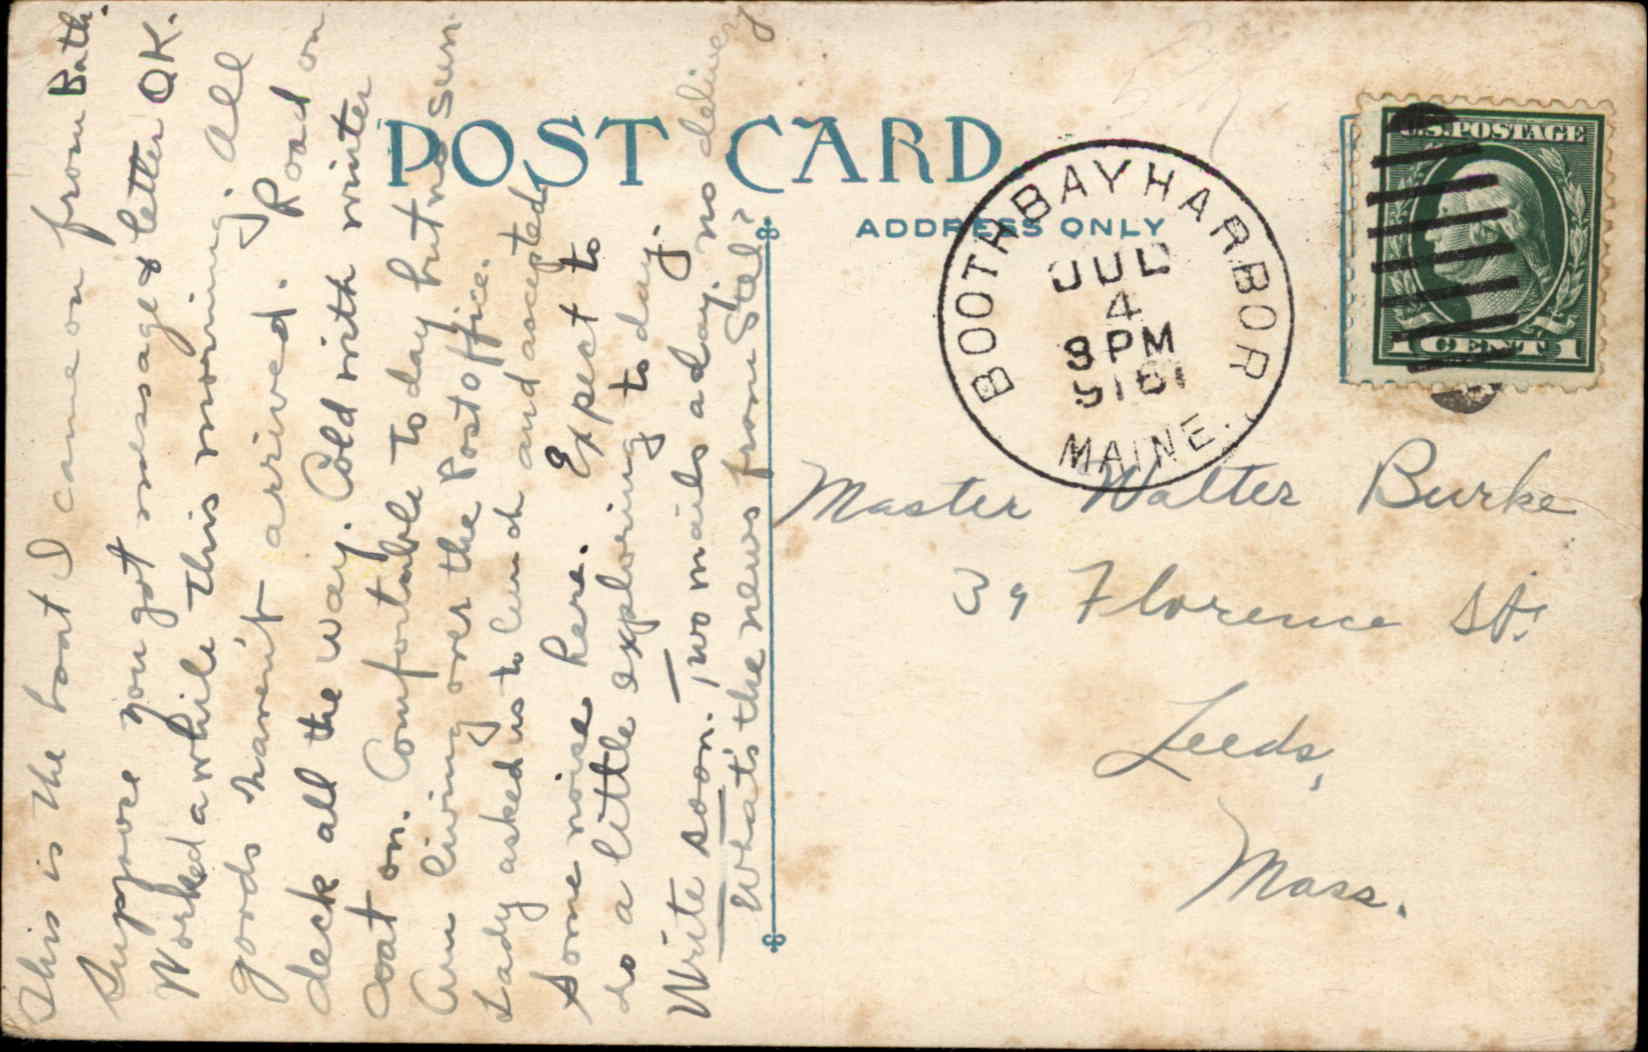 This is the boat I came on from Bath.
Suppose you got message & letter OK.
Worked a while this morning. All
goods haven't arrived. Road on
deck all the way. Cold with winter
coat on. Comfortable to day but no sun
Am living over the Post office.
Lady asked us to lunch and accepted
Some noise here. Expect to
do a little exploring to day.
Write soon. Two mails a day. no delivery
What's the news from Stel?
POST CARD
ADDRESS ONLY
BOOTHBAY HARBOR
JUL
4
8 PM
MAINE.
U.S. POSTAGE
1 CENT 1
Master Walter Burke
39 Florence St.
Leeds,
Mass.